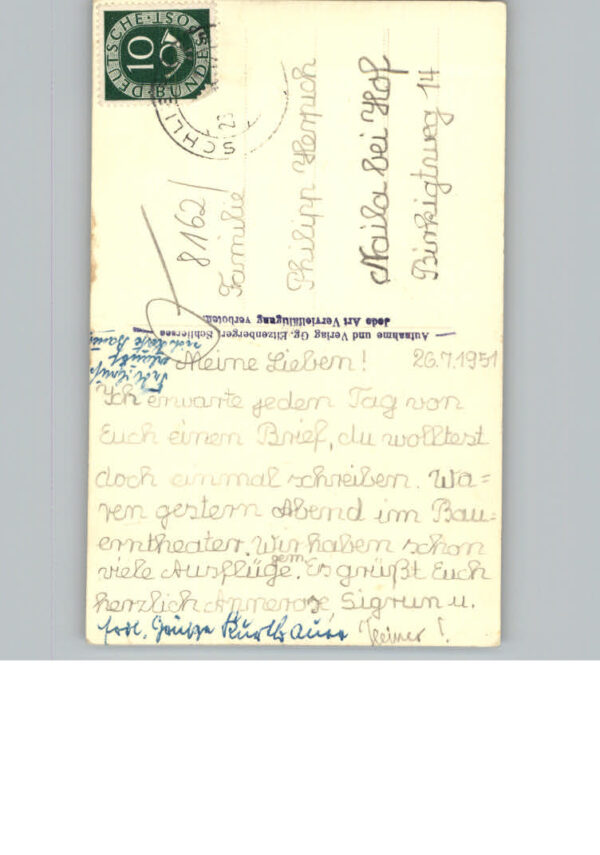 DEUTSCHE BUNDESPOST
10
SCHLIE
8162/
Familie
Philipp Herpich
Naila bei Hof
Birkigtweg 14
Aufnahme und Verlag Gg. Eitzenberger, Schliersee
Jede Art Vervielfältigung verboten
Meine Lieben! 26.7.1951
Ich erwarte jedem Tag von
Euch einem Brief, du wolltest
doch einmal schreiben. Wa=
ren gestern Abend im Bau=
erntheater. Wir haben schon
viele Ausflüge gem. Es grüßt Euch
herzlich Annerose, Sigrun u.
Heiner!
frdl. Grüße